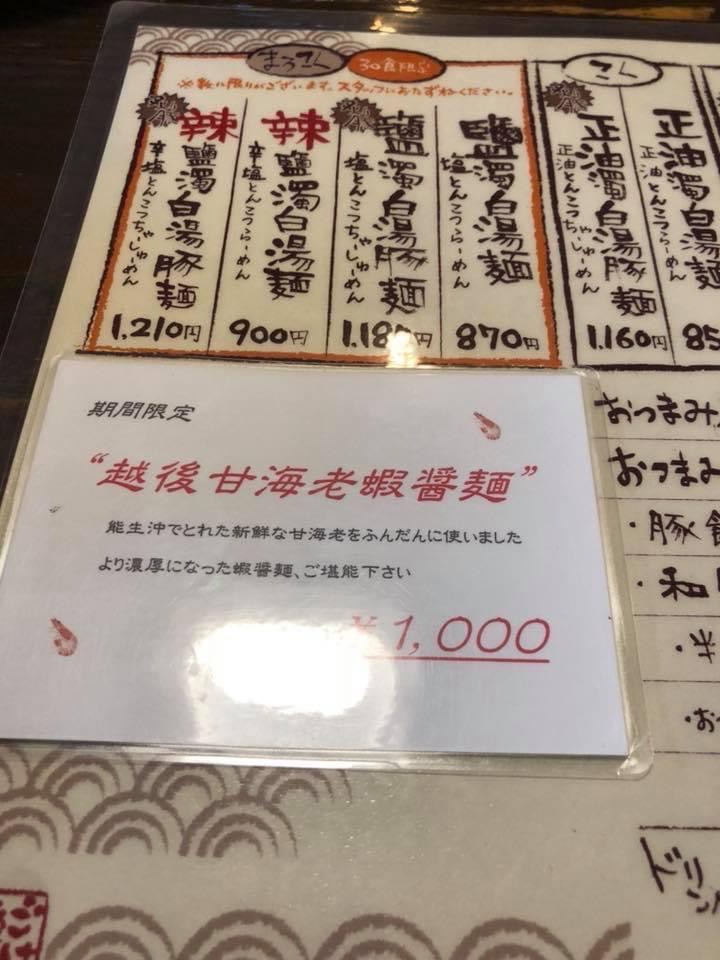 まろこく
30食限定
※数に限りがございます。スタッフにおたずねください。
辣鹽濁白湯豚麺
辛塩とんこつちゃーしゅーめん
1,210円
辣鹽濁白湯麺
辛塩とんこつらーめん
900円
鹽濁白湯豚麺
塩とんこつちゃーしゅーめん
鹽濁白湯麺
塩とんこつらーめん
870円
こく
正油濁白湯豚麺
正油とんこつちゃーしゅーめん
1,160円
正油濁白湯麺
正油とんこつらーめん
85
期間限定
“越後甘海老蝦醤麺”
能生沖でとれた新鮮な甘海老をふんだんに使いました
より濃厚になった蝦醤麺、ご堪能下さい
¥1,000
おつまみ
おつまみ
・豚
・和
・半
・お
ドリン